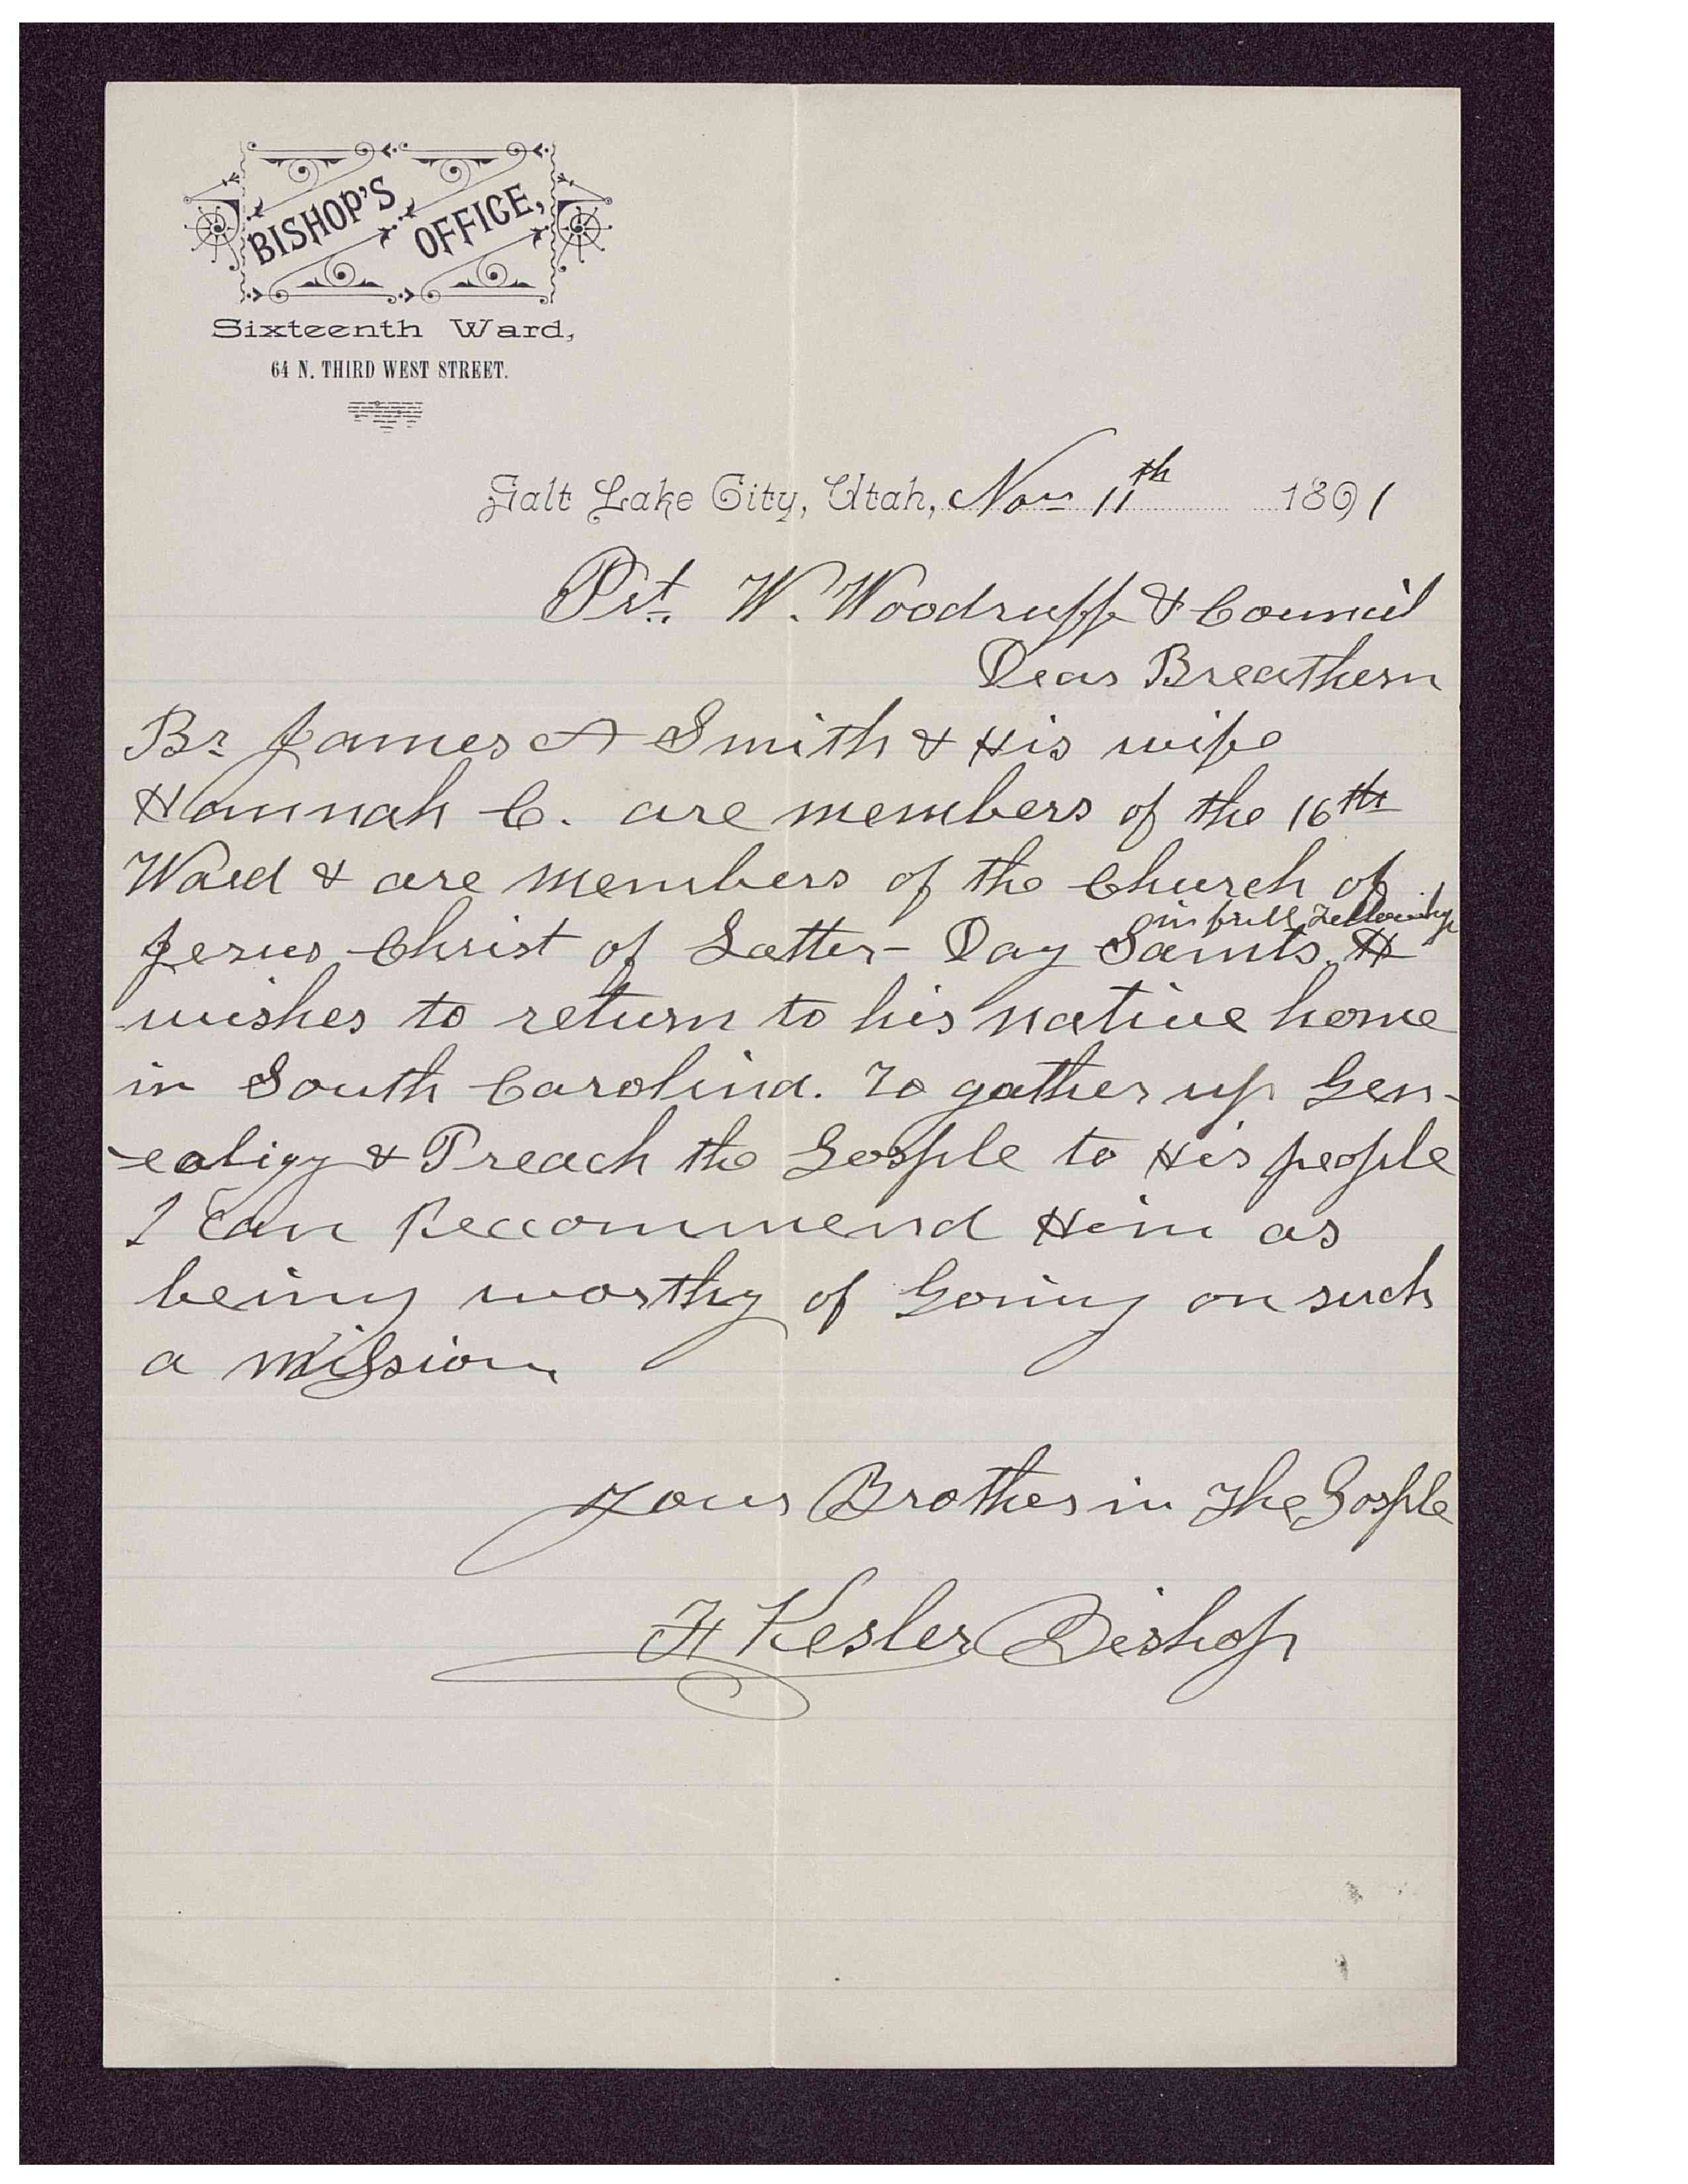 BISHOP'S OFFICE,
Sixteenth Ward,
64 N. THIRD WEST STREET.
Salt Lake City, Utah, Nov 11th 1891
Prt. W. Woodruff & Council
Dear Breathern
Br James A Smith & His wife
Hannah C. are members of the 16th
Ward & are members of the Church of
in full Fellowship
Jesus Christ of Latter-Day Saints. H
wishes to return to his native home
in South Carolina. To gather up Gen-
-ealigy & Preach the Gosple to His people
I Can Reccommend Him as
being worthy of Going on such
a mission.
Your Brother in The Gosple
F Kesler Bishop